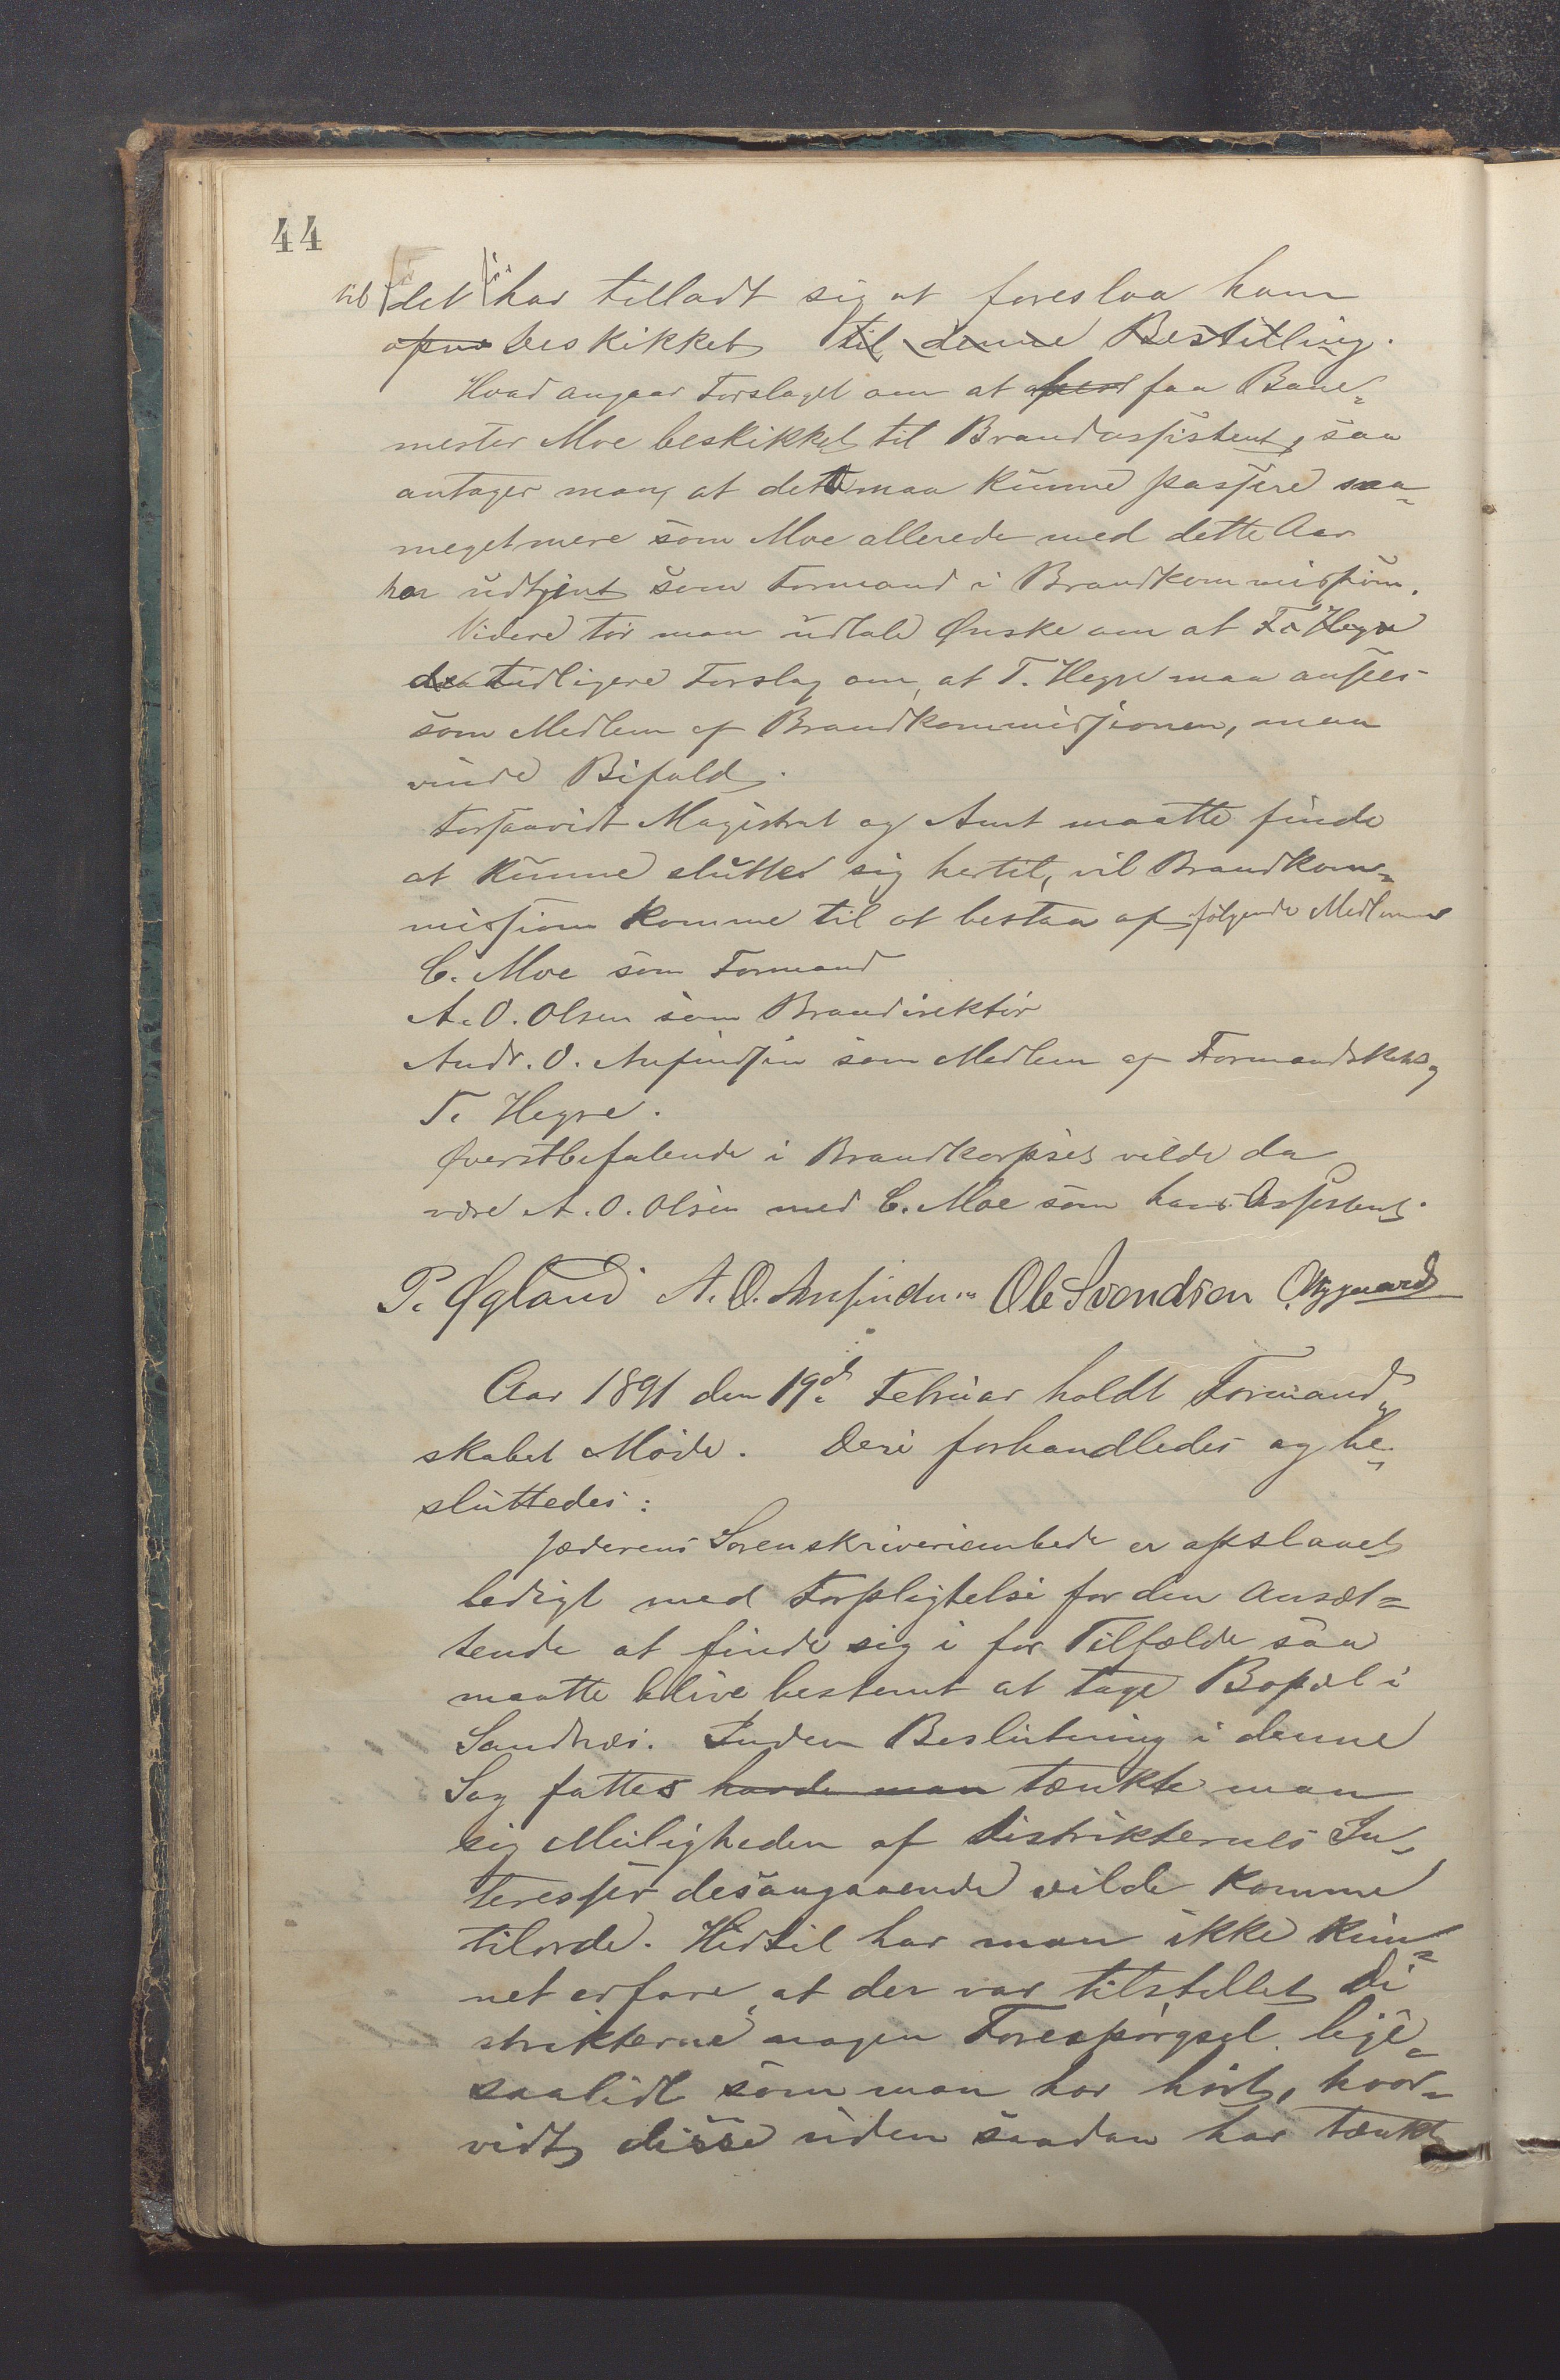 44
til det har tilladt sig at foreslaa ham
beskikket til denne Bestilling.
Hvad angaar Forslaget om at faa Bane-
mester Moe beskikket til Brandassistent, saa
antager man, at dette maa kunne passere saa-
meget mere som Moe allerede med dette Aar
har udtjent som Formand i Brandkommission.
Videre tør man udtale Ønske om at T. Hegre
tidligere Forslag om, at T. Hegre maa ansees
som Medlem af Brandkommissionen, maa
vinde Bifald.
Forsaavidt Magistrat og Amt maatte finde
at kunne slutte sig hertil, vil Brandkom-
mission komme til at bestaa af følgende Medlemmer
C. Moe som Formand
A. O. Olsen som Brandirektør
Andr. O. Anfindsen som Medlem af Formandskab og
T. Hegre.
Øverstbefalende i Brandkorpset vilde da
være A. O. Olsen med C. Moe som hans Assistent.
P. Øgland A. O. Anfindsen Ole Svendsen O. Nygaard
Aar 1891 den 19d. Februar holdt Formand-
skabet Møde. Deri forhandledes og be-
sluttedes:
Jæderens Sorenskriverembede er opslaaet
ledigt med Forpligtelse for den Ansæt-
tende at finde sig i for Tilfælde saa
maatte blive bestemt at tage Bopæl i
Sandnæs. Inden Beslutning i denne
Sag fattes havde man tænkte man
sig Muligheden af Distrikternes In-
teresser desangaaende vilde komme
tilorde. Hidtil har man ikke kun-
net erfare, at der var tilstillet Di
strikterne nogen Forespørgsel, lige-
saalidt som man har hørt, hvor-
vidt disse uden saadan har tænkt